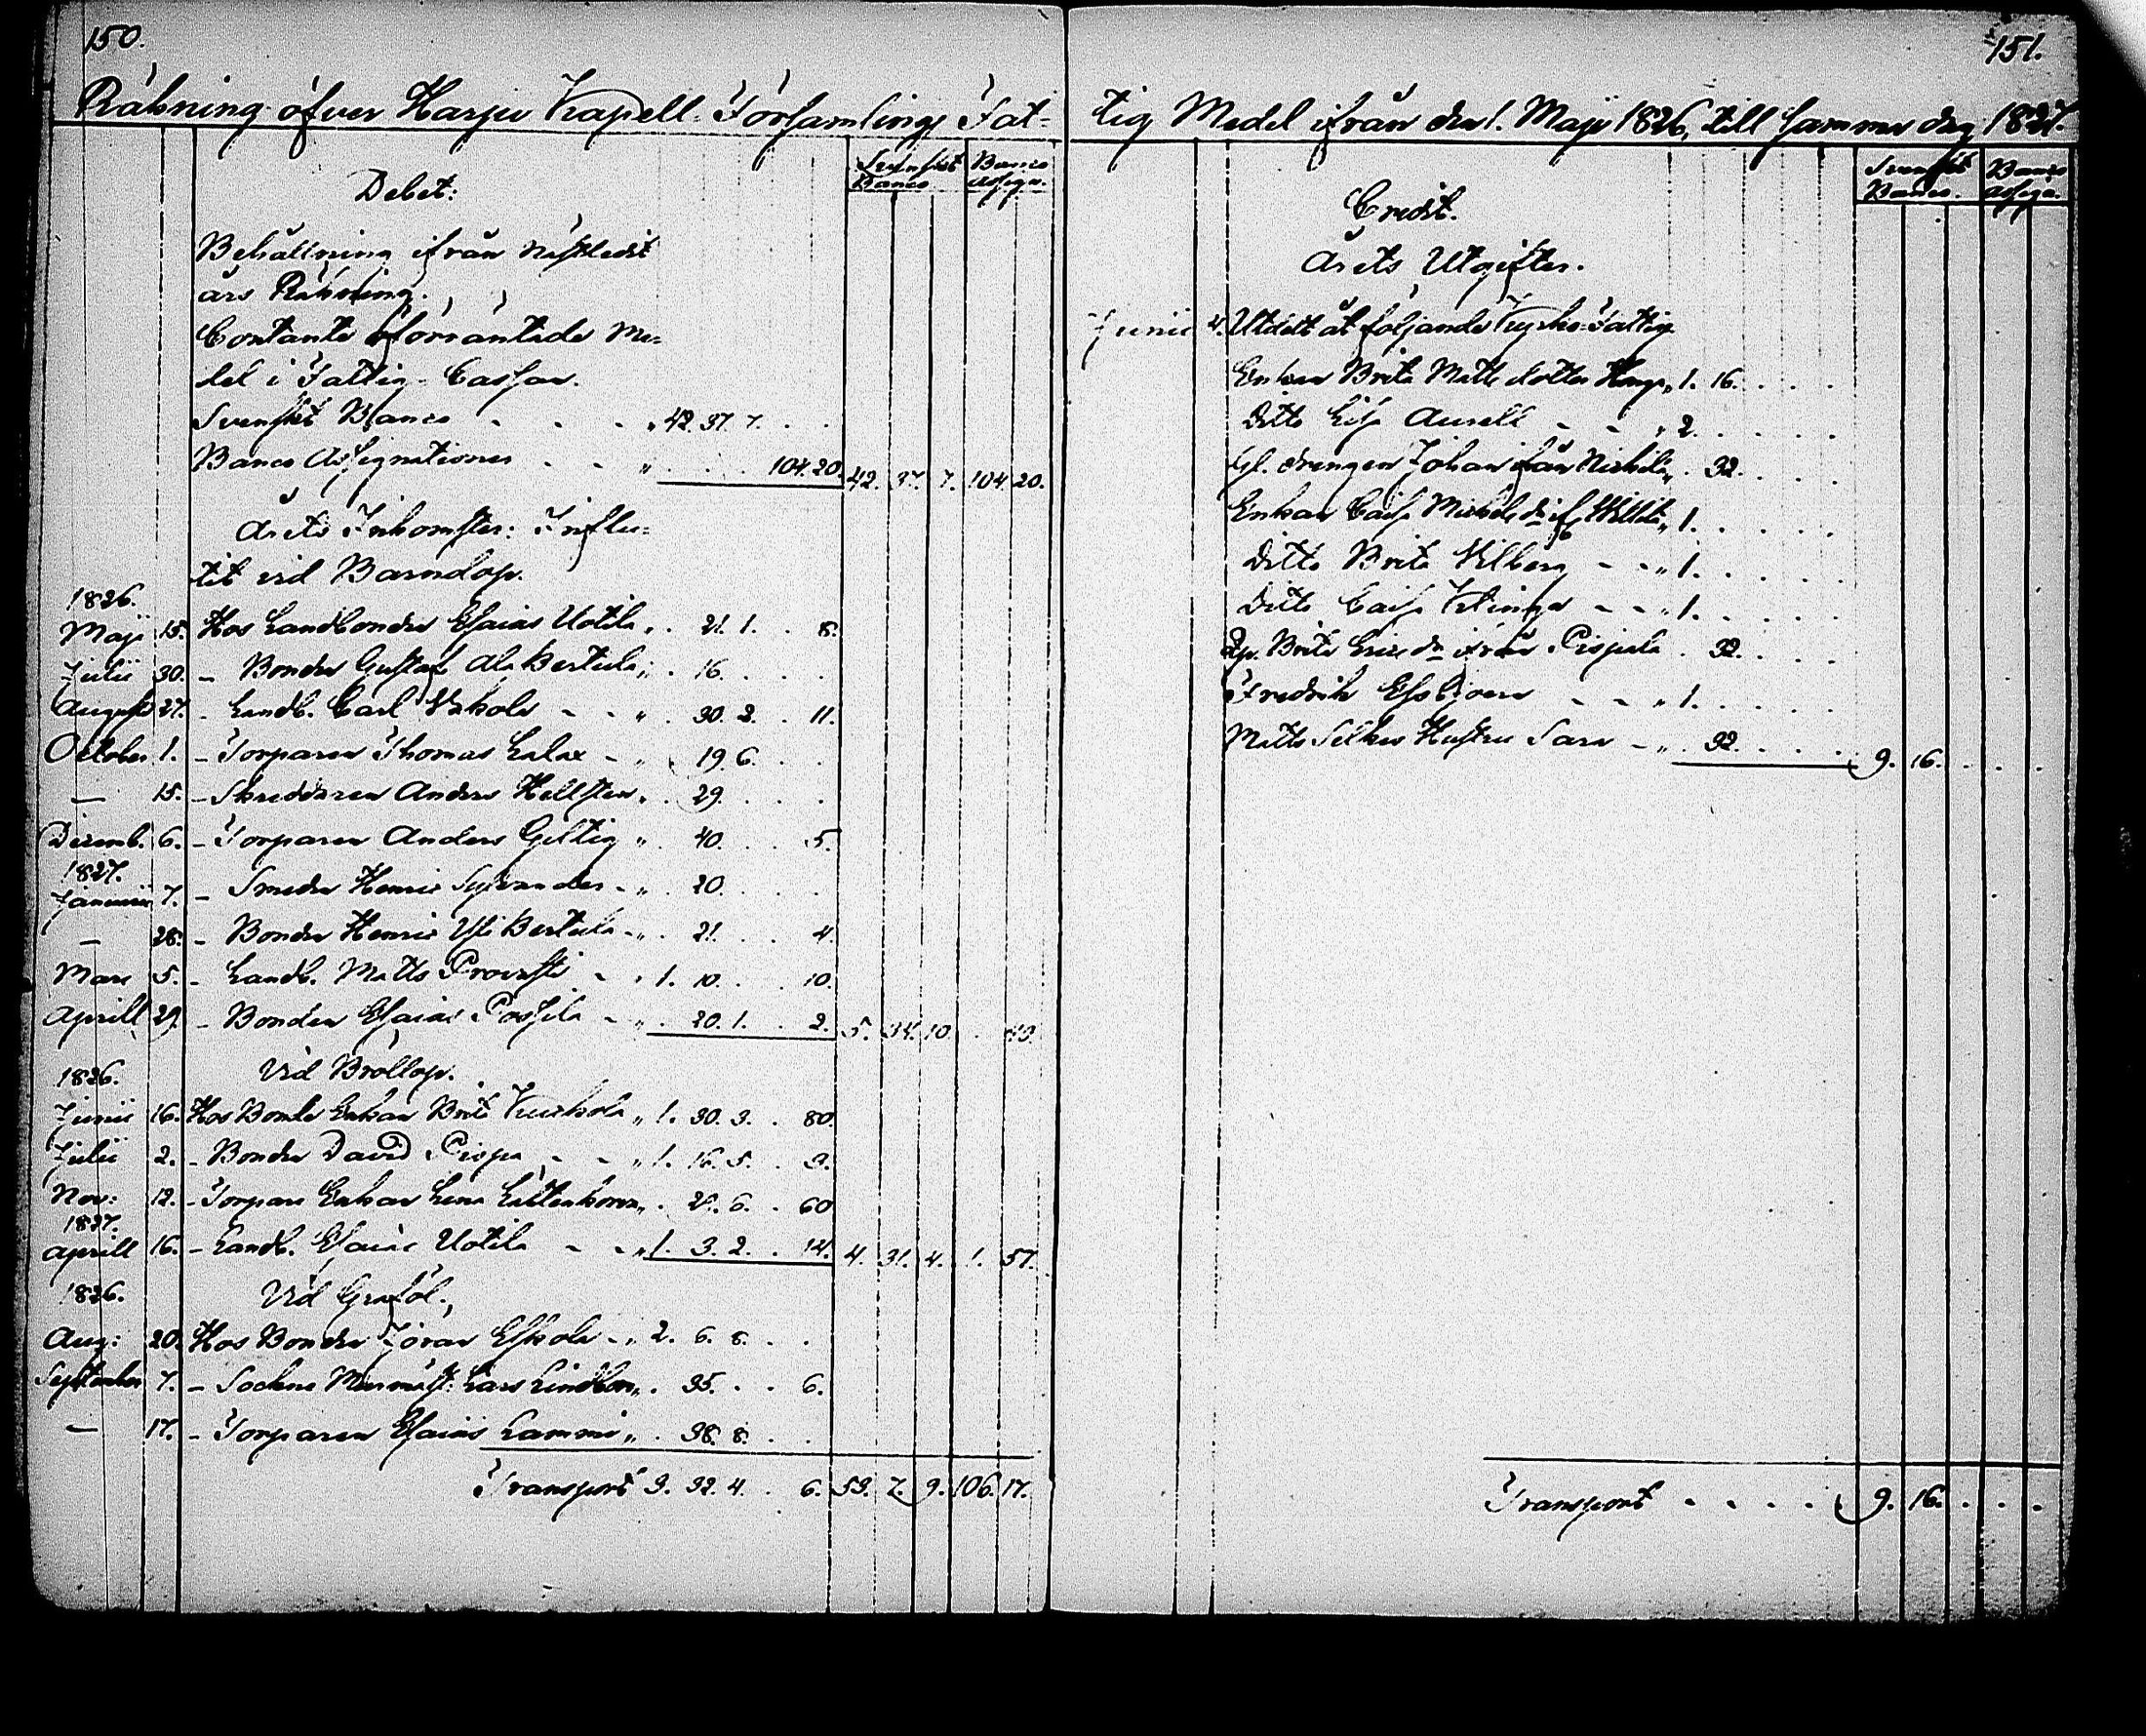 150.
Räkning öfver Harju Kapell-Församlings Fat-
Debet:
Svenskt Banco
Banco Assign.
Behållning ifrån nästledit
års Räkning.
Contante oförräntade Me-
del i Fattig-Cassan.
Svenskt Banco - - - " 42. 37. 7. . .
Banco Assignationer - - " . . . 104. 20. 42. 37. 7. 104. 20.
Årets Inkomster: Influ-
tit vid Barndop.
1826.
Maji 15. Hos Landbonden Esaias Uotila " . 21. 1. . 8.
Julii 30. - Bonden Gustaf Ala Bertula " . 16. . . .
Augusti 27. - Landb. Carl - - " . 30. 2. . 11.
October 1. - Torparen Thomas Lalax - " . 19. 6. . .
— 15. - Skreddaren Anders Hellsten " . 29. . . .
Decemb. 6. - Torparen Anders Giltig " . 40. . . 5.
1827.
Januarii 7. - Smeden Henric Sylvander - " . 20. . . .
— 28. - Bonden Henric Yli Bertula - " . 21. . . 4.
Mars 5. - Landb. Matts Provasti - " 1. 10. . . 10.
Aprill 29. - Bonden Esaias Possila - " . 20. 1. . 2. 5. 34. 10. . 40.
Vid Bröllop.
1826.
Junii 16. Hos Bonde Enkan Brita Kuckola " 1. 30. 3. . 80.
Julii 2. - Bonden David Pispa - - " 1. 16. 5. . 3.
Nov: 12. - Torpare Enkan Lena " . 29. 6. . 60
1827.
Aprill 16. - Landb. Esaias Uotila - - " 1. 3. 2. . 14. 4. 31. 4. 1. 57.
1826.
Vid Graföl.
Aug: 20. Hos Bonden Jöran Eskola - " 2. 6. 8. . .
September 7. - Sockne Murmäst: Lars " . 35. . . 6.
— 17. - Torparen Esaias Lammi " . 38. 8. . .
Transport 3. 32. 4. . 6. 53. 7. 9. 106. 17.
151.
tig Medel ifrån den 1. Maji 1826, till samma dag 1827.
Svenskt Banco.
Banco Assign.
Credit.
Årets Utgifter.
Junii 4. Utdelt åt följande Kyrko-Fattige
Enkan Brita Matts dotter " 1. 16. . . .
Ditto Lisa Aurell - - " 2. . . . .
Gl. drengen Johan ifrån " . 32. . . .
Enkan Caisa Michels dr if. " 1. . . . .
Ditto Brita Vilberg - - " 1. . . . .
Ditto Caisa - - " 1. . . . .
Brita Erics dr ifrån Prisjula . 32. . . .
Fredrik - - " 1. . . . .
Matts Silkes Hustru Sara - " . 32. . . . 9. 16. . . .
Transport - - - - 9. 16. . . .